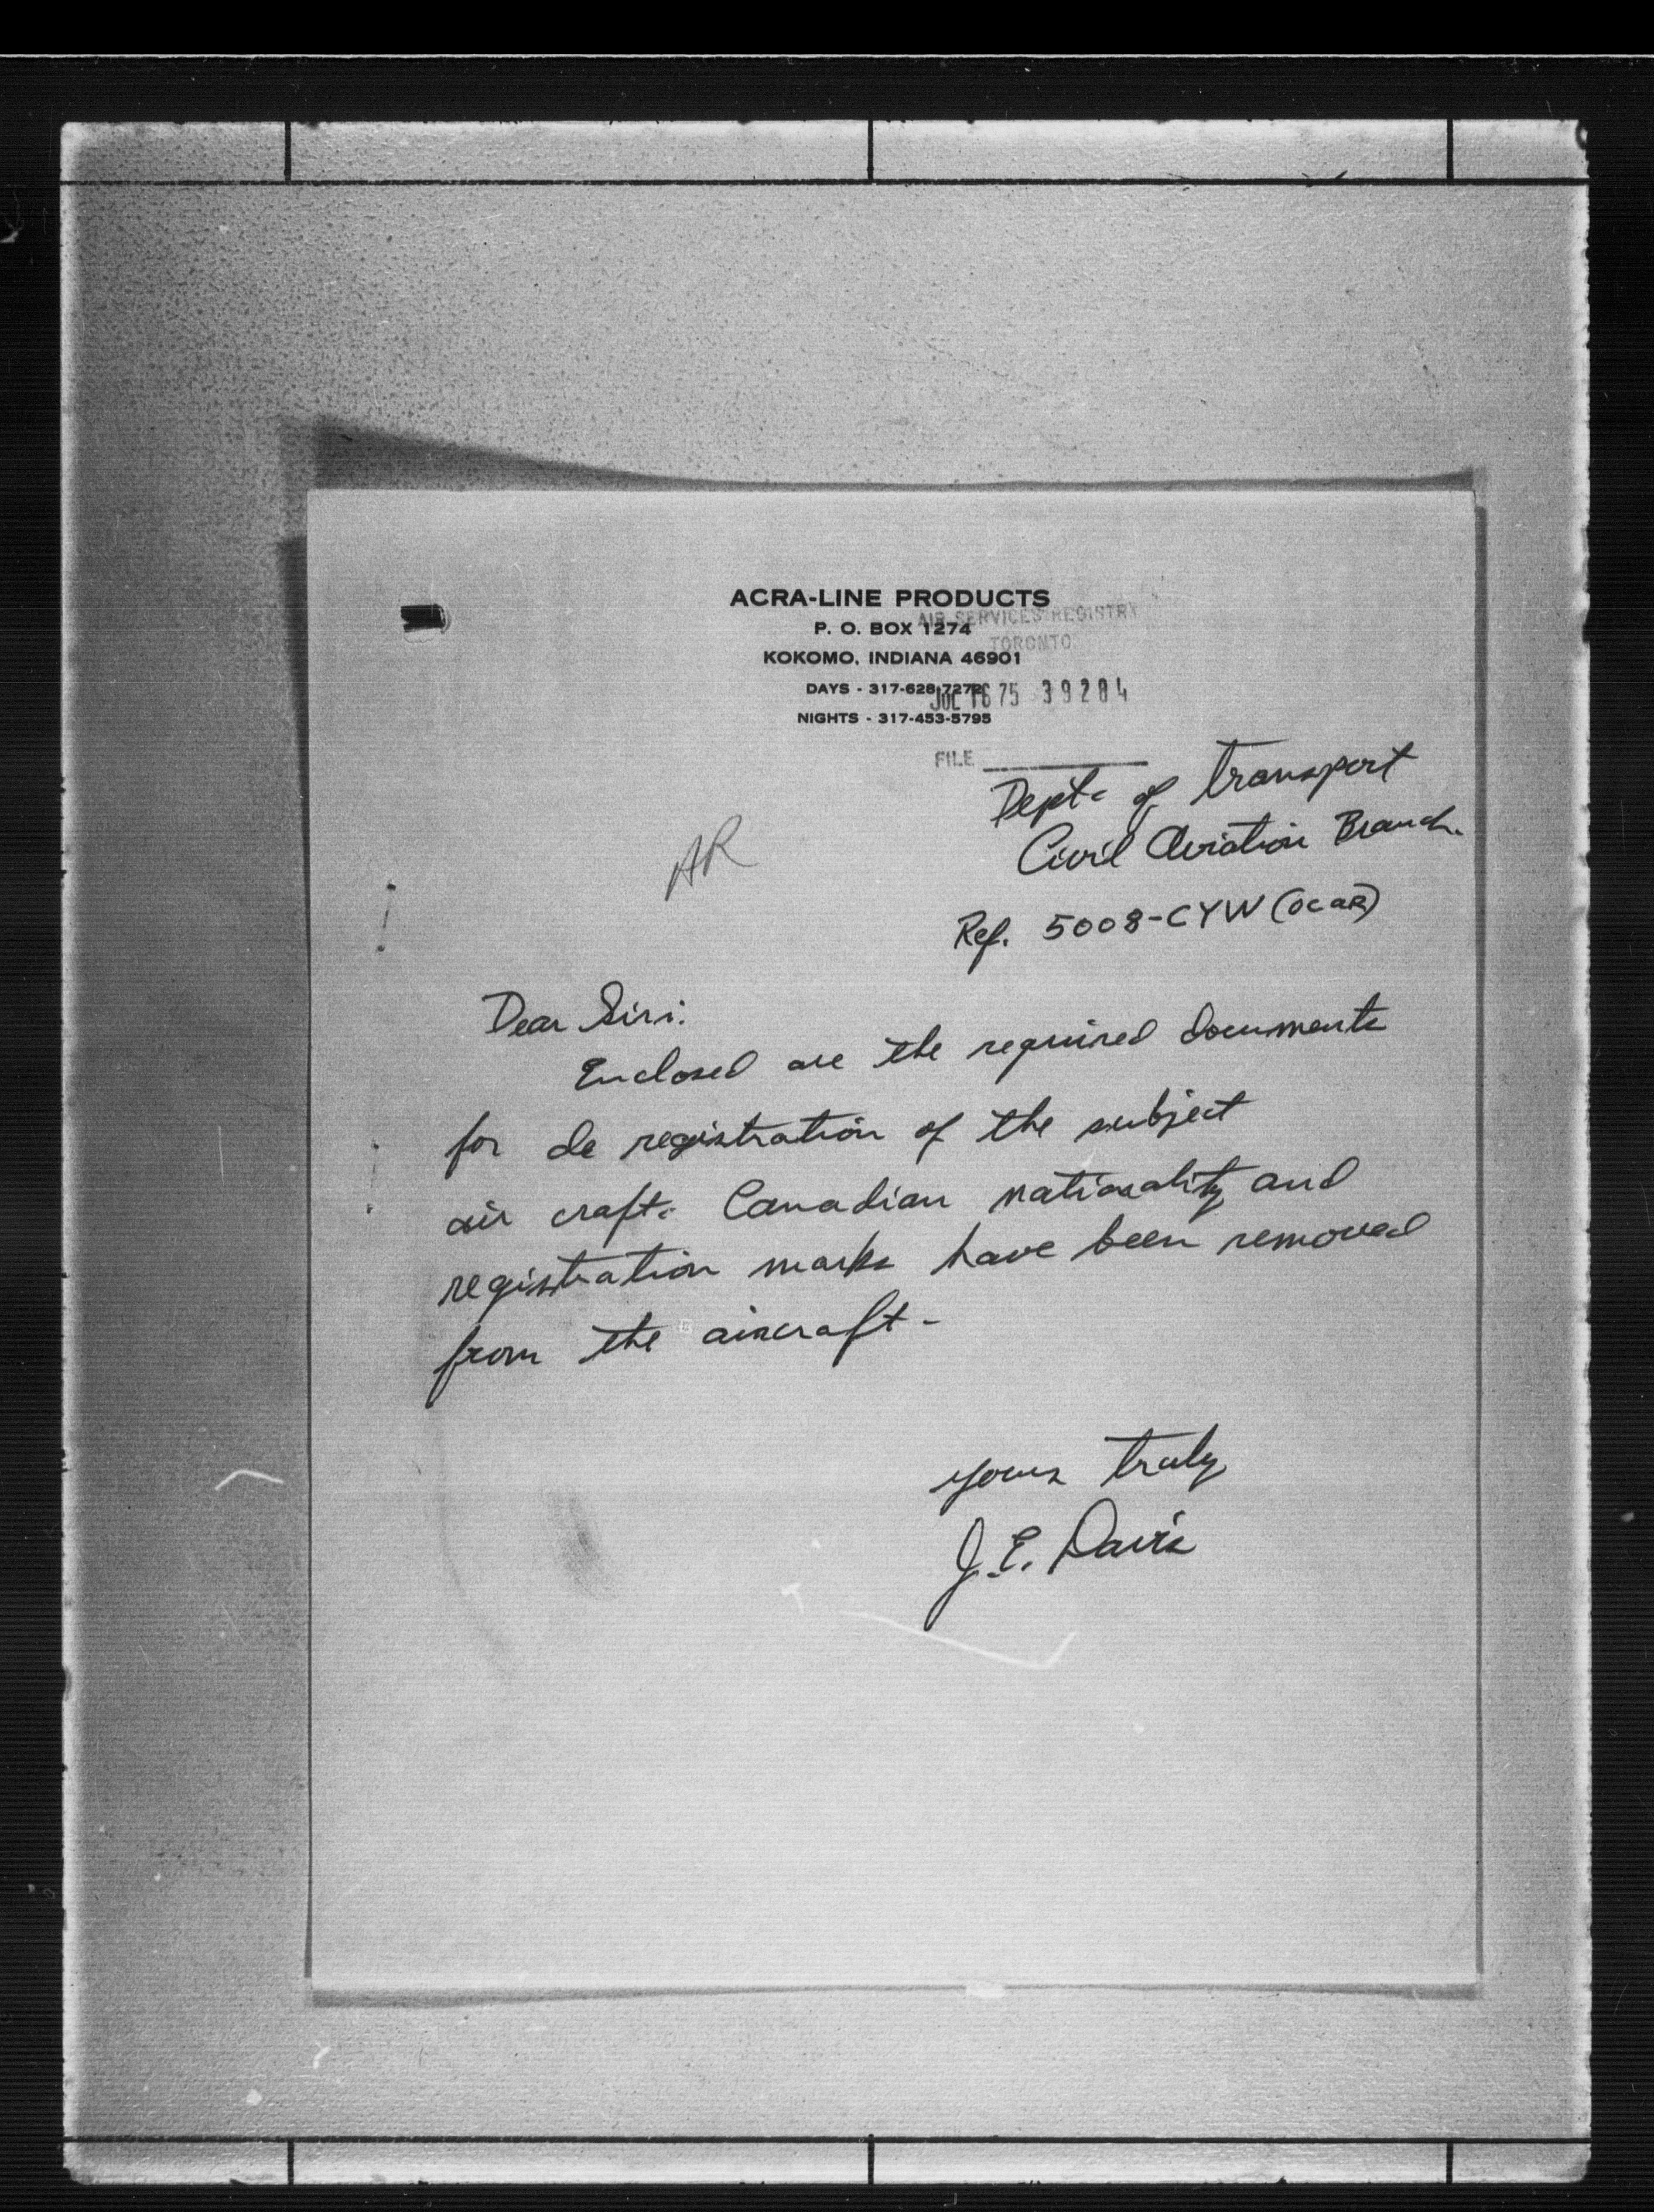 ACRA-LINE PRODUCTS
AIR SERVICES REGISTRY
P. O. BOX 1274
TORONTO
KOKOMO, INDIANA 46901
DAYS - 317-628-7272
JUL 16 75 39284
NIGHTS - 317-453-5795
FILE
Dept. of Transport
Civil Aviation Branch.
AR
Ref. 5008-CYW (OCAR)
Dear Sirs:
Enclosed are the required documents
for de registration of the subject
air craft. Canadian nationality and
registration marks have been removed
from the aircraft.
Yours truly
J. E. Davis